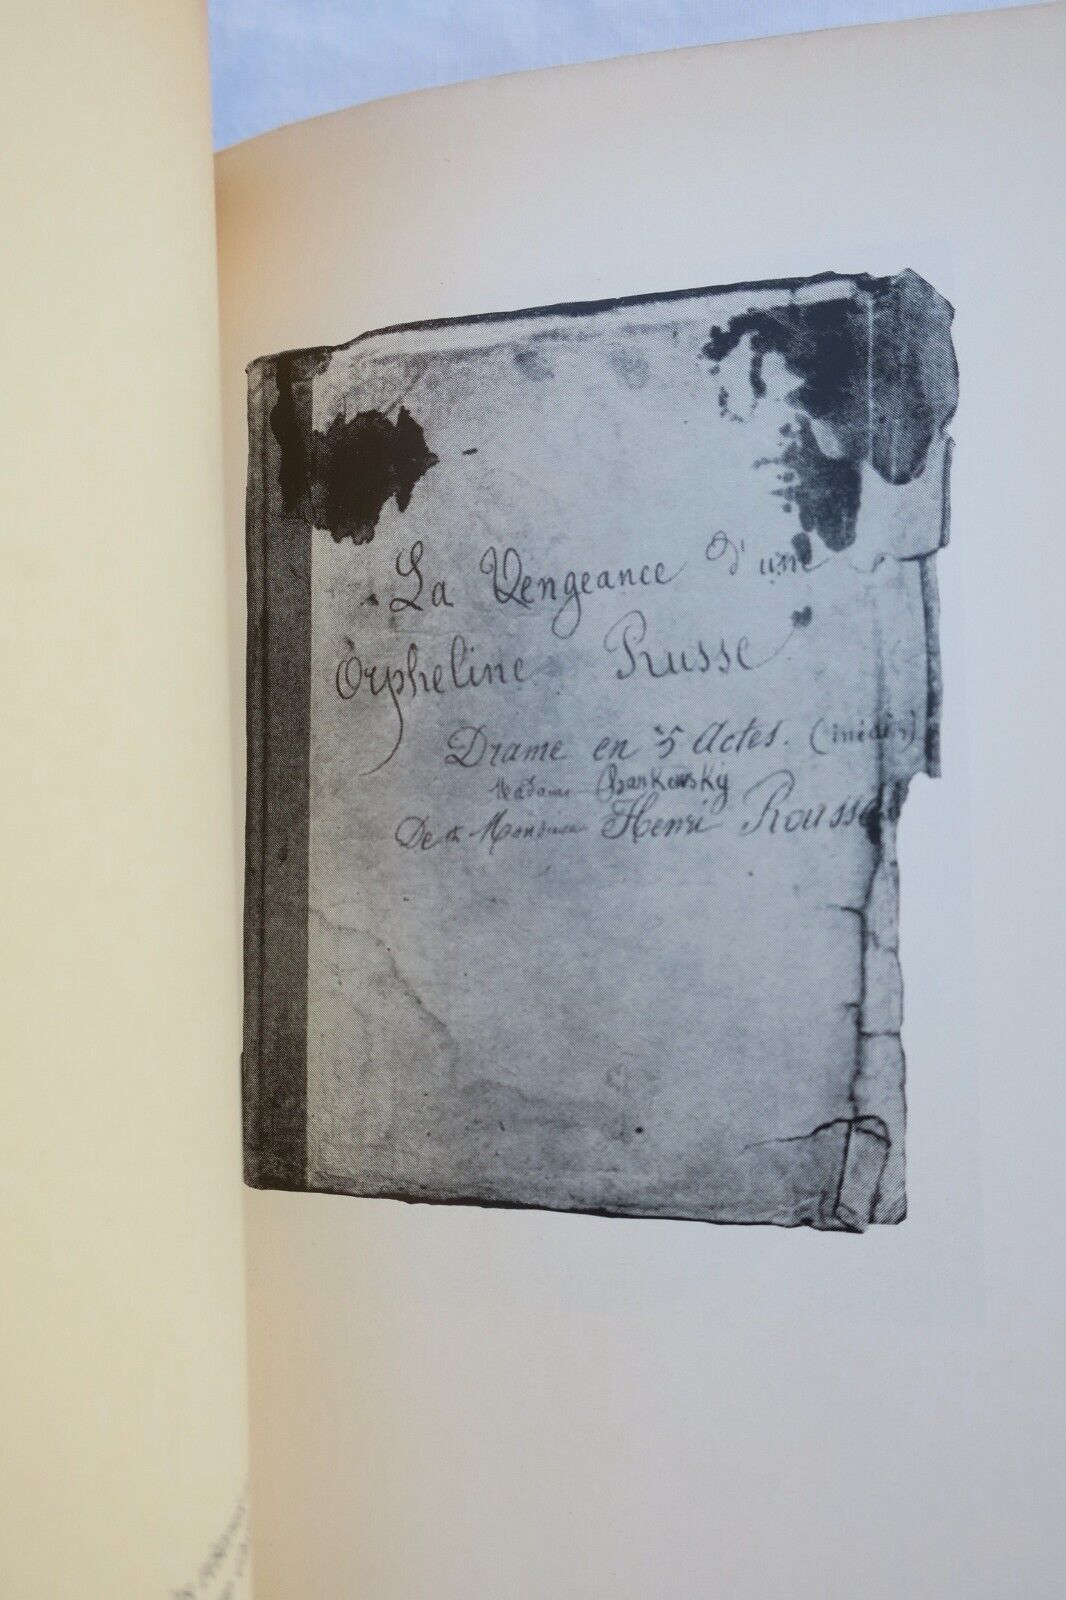 La Vengeance d'une
Orpheline Russe
Drame en 5 Actes. (inédit)
Madame Barkowsky
De et Monsieur Henri Rousse